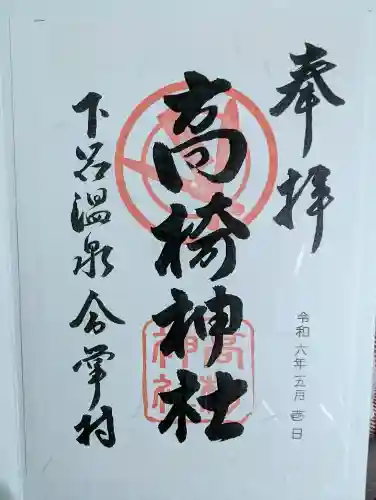 奉拝
高椅神社
下呂温泉合掌村
令和六年五月壱日
高椅
神社